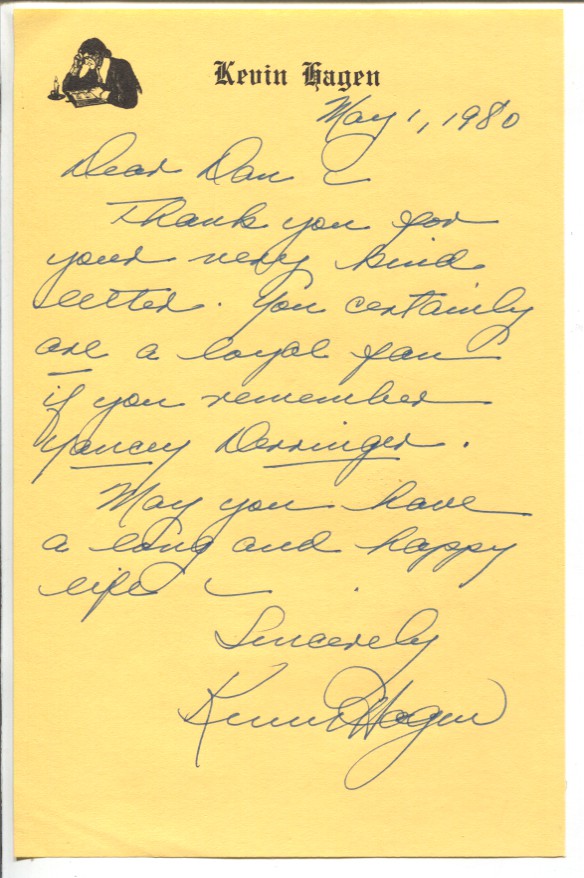 Kevin Hagen
May 1, 1980
Dear Dan ~
Thank you for
your very kind
letter. You certainly
are a loyal fan
if you remember
Yancey Derringer.
May you have
a long and happy
life ~
Sincerely
Kevin Hagen